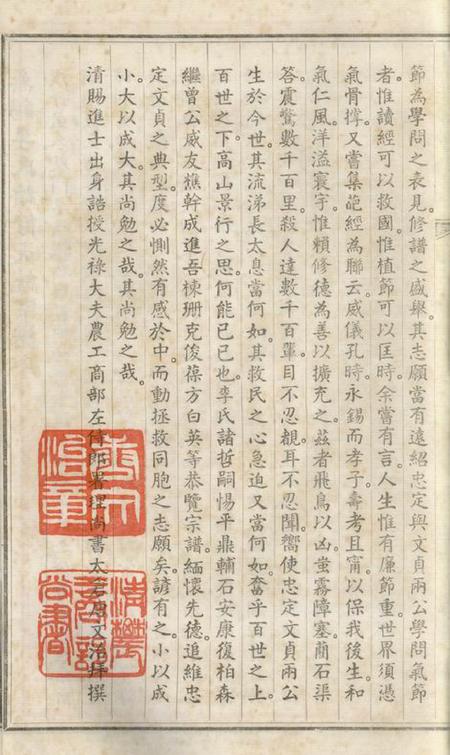 節為學問之表見修譜之盛舉其志願當有遠紹忠定與文貞兩公學問氣節
者惟讀經可以救國惟植節可以匡時余嘗有言人生惟有廉節重世界須憑
氣骨撐又嘗集葩經為聯云威儀孔時永錫而孝子壽考且甯以保我後生和
氣仁風洋溢寰宇惟賴修德為善以擴充之茲者飛鳥以凶蚩霧障塞蕳石渠
答震驚數千百里殺人達數千百輩目不忍覩耳不忍聞嚮使忠定文貞兩公
生於今世其流涕長太息當何如其救民之心急迫又當何如奮乎百世之上
百世之下高山景行之思何能已已也李氏諸哲嗣惕平鼎輔石安康復柏森
繼曾公威友樵幹成進吾棟珊克俊葆方白英等恭覽宗譜緬懷先德追維忠
定文貞之典型度必惻然有感於中而動拯救同胞之志願矣諺有之小以成
小大以成大其尚勉之哉其尚勉之哉
清賜進士出身誥授光祿大夫農工商部左侍郎署理尚書太倉唐文治拜撰
唐文治章